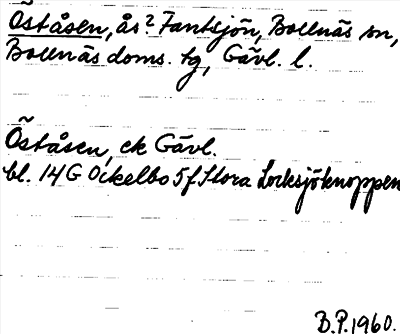 Öståsen, ås? Fantsjön, Bollnäs sn,
Bollnäs doms. tg, Gävl. l.
Öståsen, ek Gävl.
bl. 14G Ockelbo 5f Stora Locksjöknoppen
B.P. 1960.